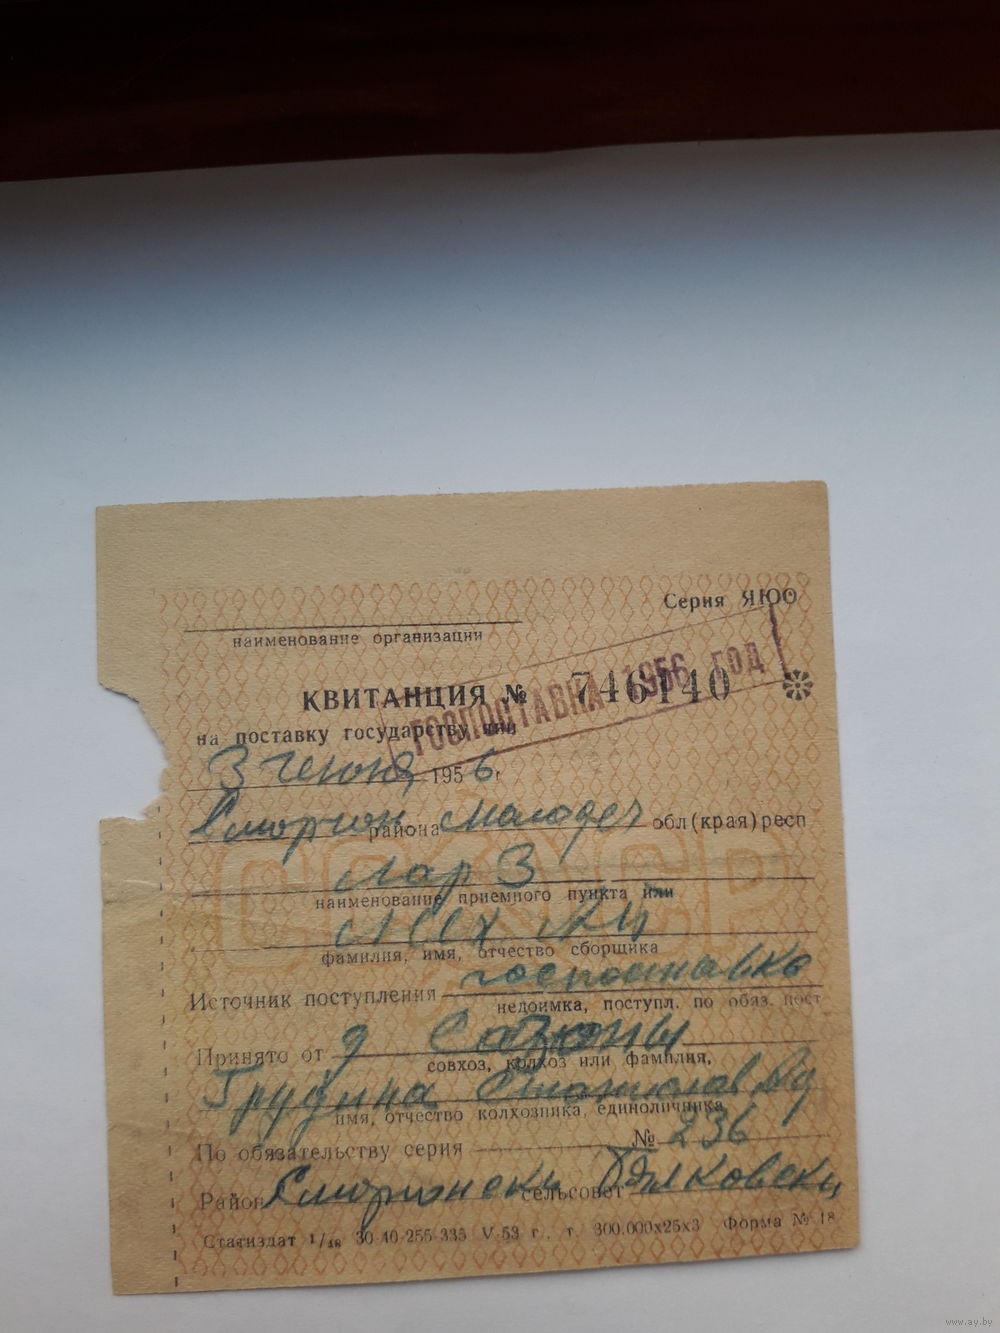 Серия ЯЮО
наименование организации
КВИТАНЦИЯ № 746140
ГОСПОСТАВКА 1956 ГОД
на поставку государству яиц
3 июня 1956 г
Сморгон района Молодеч обл (края) респ
Лар 3
наименование приемного пункта или
фамилия, имя, отчество сборщика
Источник поступления госпоставка
недоимка, поступл. по обяз. пост
Принято от д
совхоз, колхоз или фамилия,
Грудина Станислав
имя, отчество колхозника, единоличника
По обязательству серия № 236
Район Сморгонски сельсовет
Статиздат 1/18 30-10-255-335 V-53 г., т. 300.000х25х3 Форма № 18
СССР
www.ay.by